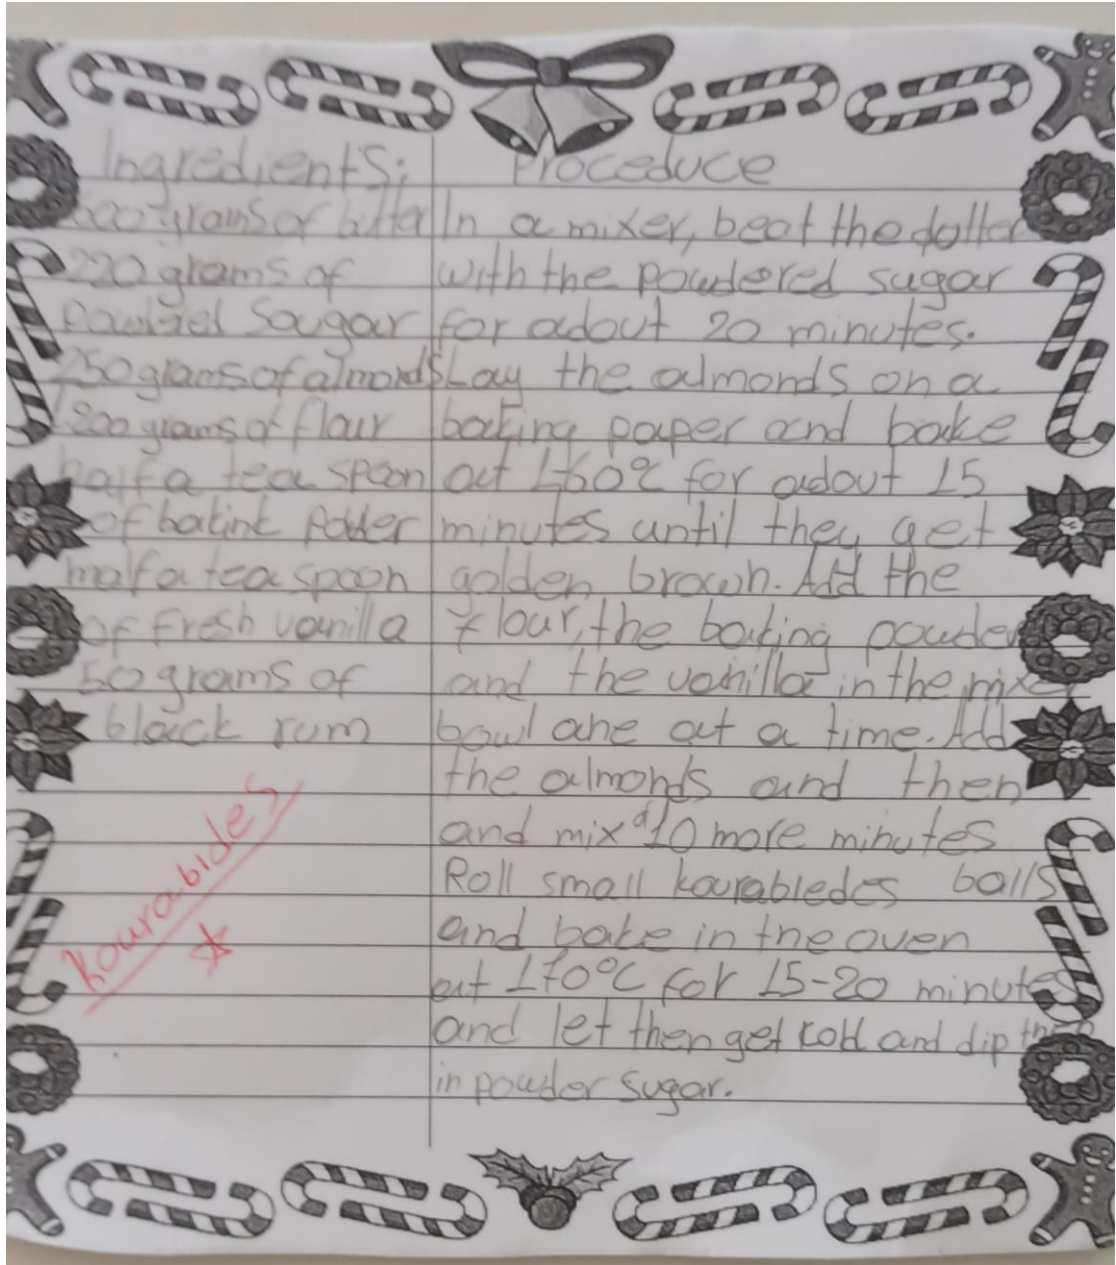 Ingredients;
grams of butter
220 grams of
Sougar
250 grams of almonds
grams of flour
half a tea spoon
of bakint
a tea spoon
of fresh vanilla
50 grams of
black rum
kourabides
Proceduce
In a mixer, beat the
with the powdered sugar
for adout 20 minutes.
Lay the almonds on a
baking paper and bake
at 160°C for adout 15
minutes until they get
golden brown. Add the
flour, the baking powder
and the vanilla in the mixer
bowl ane at a time. Add
the almonds and then
and mix 10 more minutes
Roll small kourabledes balls
and bake in the oven
at 170°C for 15-20 minutes
and let then get cold and dip
in powder sugar.